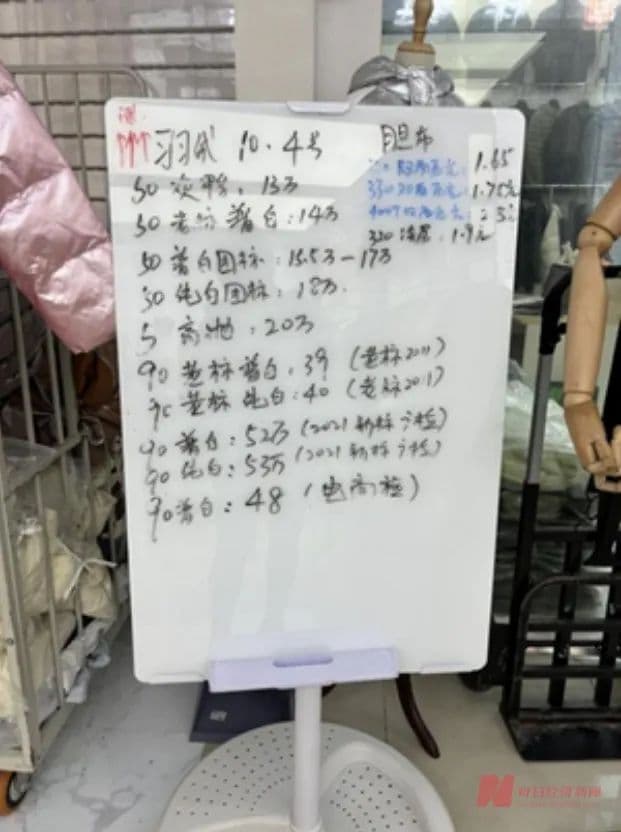 ↑↑↑ 羽绒 10.4号
50 灰鸭: 13万
50 普白: 14万
50 普白国标: 15.5万-17万
50 纯白国标: 18万
5 : 20万
90 老标 普白: 39 (老标2011)
90 老标 纯白: 40 (老标2011)
90 普白: 52万 (2021新标 检)
90 纯白: 53万 (2021新标 检)
90 普白: 48 (电商检)
胆布
1.65
1.75元
400T
320 涂层: 1.9元
每日经济新闻